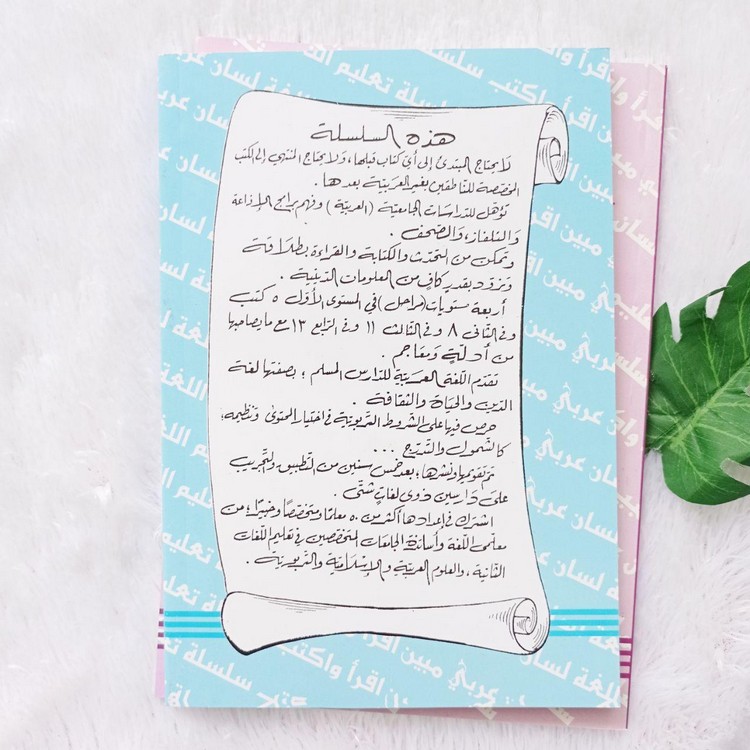 هذه السلسلة
لا يحتاج المبتدئ إلى أي كتاب قبلها، ولا يحتاج المنتهي إلى الكتب
المخصّصة للناطقين بغير العربيّة بعدها.
تؤهّل للدّراسات الجامعيّة (العربيّة) وفهم برامج الإذاعة
والتلفاز، والصّحف.
وتمكن من التحدّث والكتابة والقراءة بطلاقة
وتزوّد بقدر كافٍ من المعلومات الدّينية.
أربعة مستويات (مراحل) في المستوى الأوّل ٥ كتب
وفي الثّاني ٨ وفي الثّالث ١١ وفي الرّابع ١٣ مع ما يصاحبها
من أدلّةٍ ومعاجم.
تقدّم اللّغة العربيّة للدّارس المسلم؛ بصفتها لغة
الدّين والحياة والثّقافة.
حرص فيها على الشّروط التّربويّة في اختيار المحتوى وتنظيمه؛
كالشّمول والتّدرّج ...
تمّ تقويمها ونشرها؛ بعد خمس سنين من التّطبيق والتّجريب
على دارسين ذوي لغاتٍ شتّى.
اشترك في إعدادها أكثر من ٥٠ معلّمًا ومتخصّصًا وخبيرًا؛ من
معلّمي اللّغة وأساتذة الجامعات المتخصّصين في تعليم اللّغات
الثّانية، والعلوم العربيّة والإسلاميّة والتّربويّة.